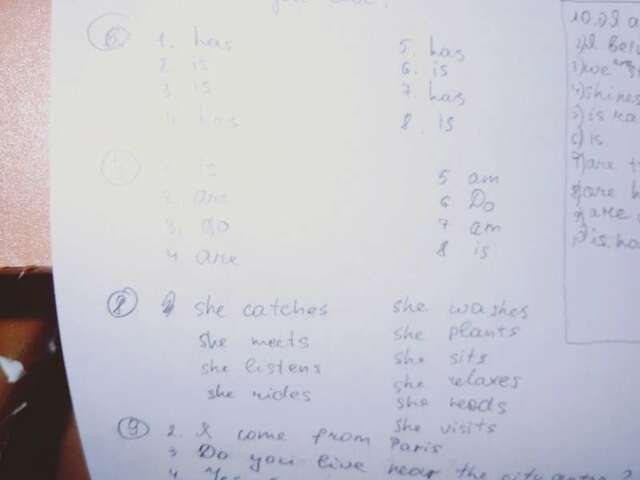 6 1. has
2. is
3. is
4. has
5. has
6. is
7. has
8. is
1. is
2. are
3. do
4 are
5 am
6 Do
7 am
8 is
8 she catches
she meets
she listens
she rides
she washes
she plants
she sits
she relaxes
she reads
she visits
9 2. I come from Paris
3 Do you live near the city
4 Yes
10. I a
2) I
3) we are
4) shines
5) is
6) is
7) are
8) are h
9) are
is ha